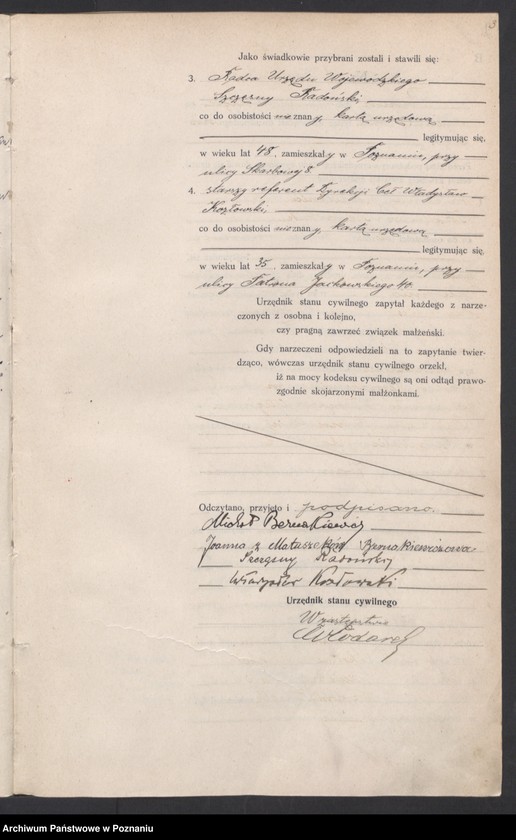 3
Jako świadkowie przybrani zostali i stawili się:
3. Radca Urzędu Wojewódzkiego
Szczęsny Radoński,
co do osobistości nieznany, kartą urzędową
legitymując się,
w wieku lat 48, zamieszkały w Poznaniu, przy
ulicy Skarbowej 8.
4. starszy referent Dyrekcji Ceł Władysław
Kozłowski,
co do osobistości nieznany, kartą urzędową
legitymując się,
w wieku lat 35, zamieszkały w Poznaniu, przy
ulicy Patrona Jackowskiego 40.
Urzędnik stanu cywilnego zapytał każdego z narze-
czonych z osobna i kolejno,
czy pragną zawrzeć związek małżeński.
Gdy narzeczeni odpowiedzieli na to zapytanie twier-
dząco, wówczas urzędnik stanu cywilnego orzekł,
iż na mocy kodeksu cywilnego są oni odtąd prawo-
zgodnie skojarzonymi małżonkami.
Odczytano, przyjęto i podpisano.
Michał Bernakiewicz
Joanna z Matuszeków Bernakiewiczowa
Szczęsny Radoński
Władysław Kozłowski
Urzędnik stanu cywilnego
W zastępstwie
Włodarek
Archiwum Państwowe w Poznaniu